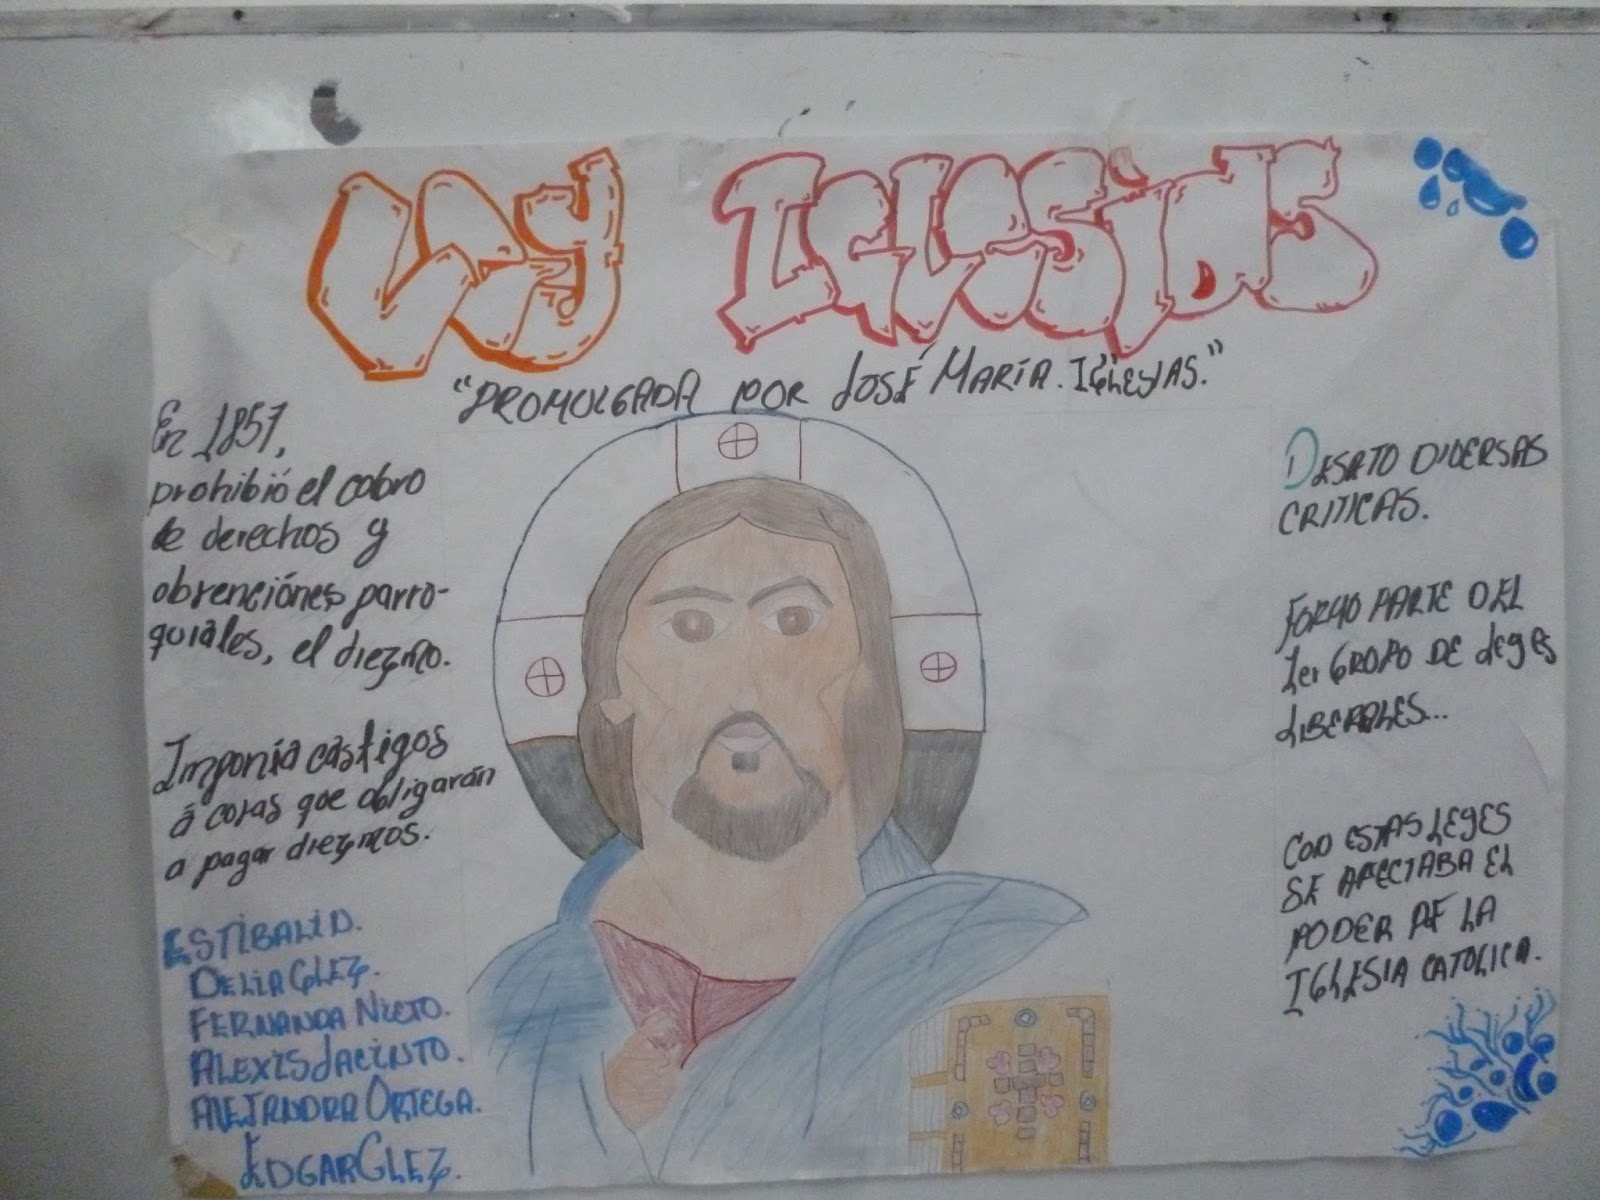 Ley Iglesias
"PROMULGADA POR JOSÉ MARÍA. IGLESIAS."
En 1857,
prohibió el cobro
de derechos y
obvenciónes parro-
quiales, el diezmo.
Imponía castigos
á coras que obligarán
a pagar diezmos.
ESTIBALI D.
DELIA GLEZ.
FERNANDA NIETO.
ALEXIS JACINTO.
ALEJANDRA ORTEGA.
EDGAR GLEZ.
DESATO DIVERSAS
CRITICAS.
FORMO PARTE DEL
1er GRUPO DE LEYES
LIBERALES...
CON ESTAS LEYES
SE AFECTABA EL
PODER DE LA
IGLESIA CATOLICA.